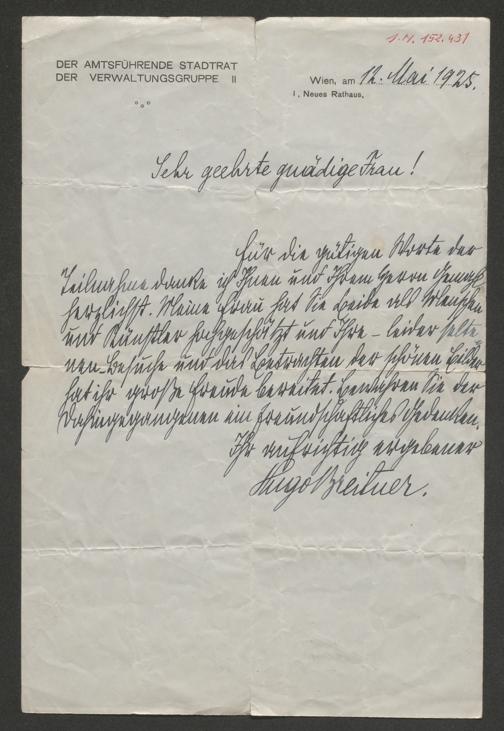 I.N. 152.431
DER AMTSFÜHRENDE STADTRAT
DER VERWALTUNGSGRUPPE II
Wien, am 12. Mai 1925.
I, Neues Rathaus.
Sehr geehrte gnädige Frau!
Für die gütigen Worte der
Teilnahme danke ich Ihnen und Ihrem Herrn Gemahl
herzlichst. Meine Frau hat Sie beide als Menschen
und Künstler hochgeschätzt und Ihre – leider selte-
nen – Besuche und das Betrachten der schönen Bilder
hat ihr große Freude bereitet. Bewahren Sie der
Dahingegangenen ein freundschaftliches Gedenken.
Ihr aufrichtig ergebener
Hugo Breitner.